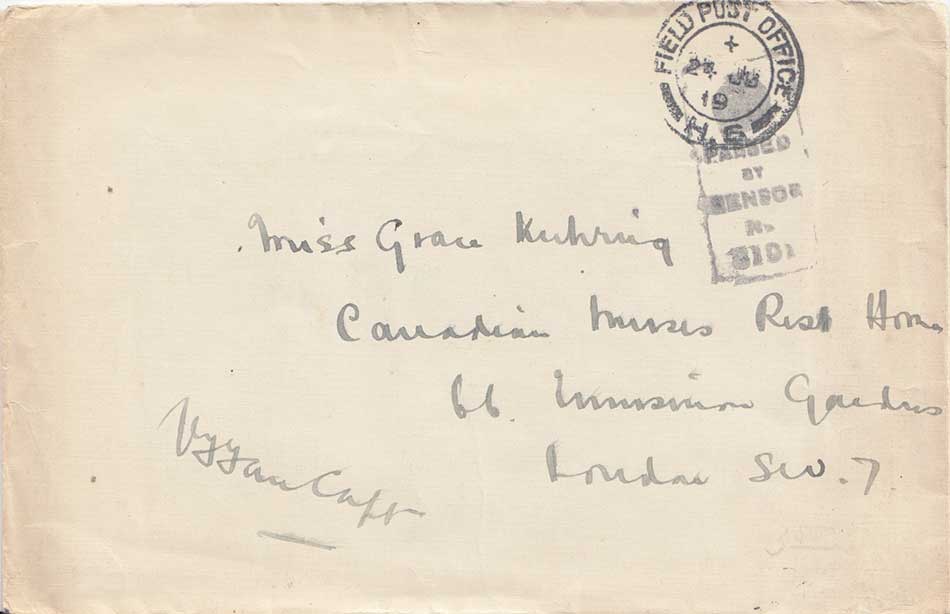 FIELD POST OFFICE
JU
19
PASSED
BY
CENSOR
No
Miss Grace Kuhring
Canadian Nurses Rest Home
66. Ennismore Gardens
London SW. 7